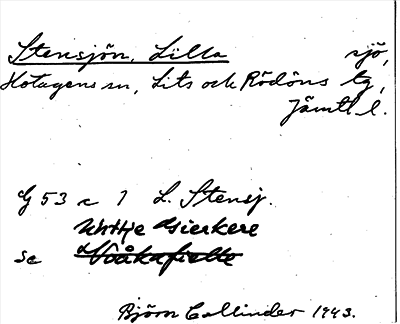 Stensjön, Lilla sjö,
Hotagens sn, Lits och Rödöns tg,
Jämtl l.
G 53 c 1 L. Stensj.
Uhttje Gierkere
se
Björn Collinder 1943.